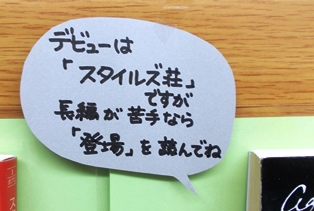 デビューは
「スタイルズ荘」
ですが
長編が苦手なら
「登場」を読んでね